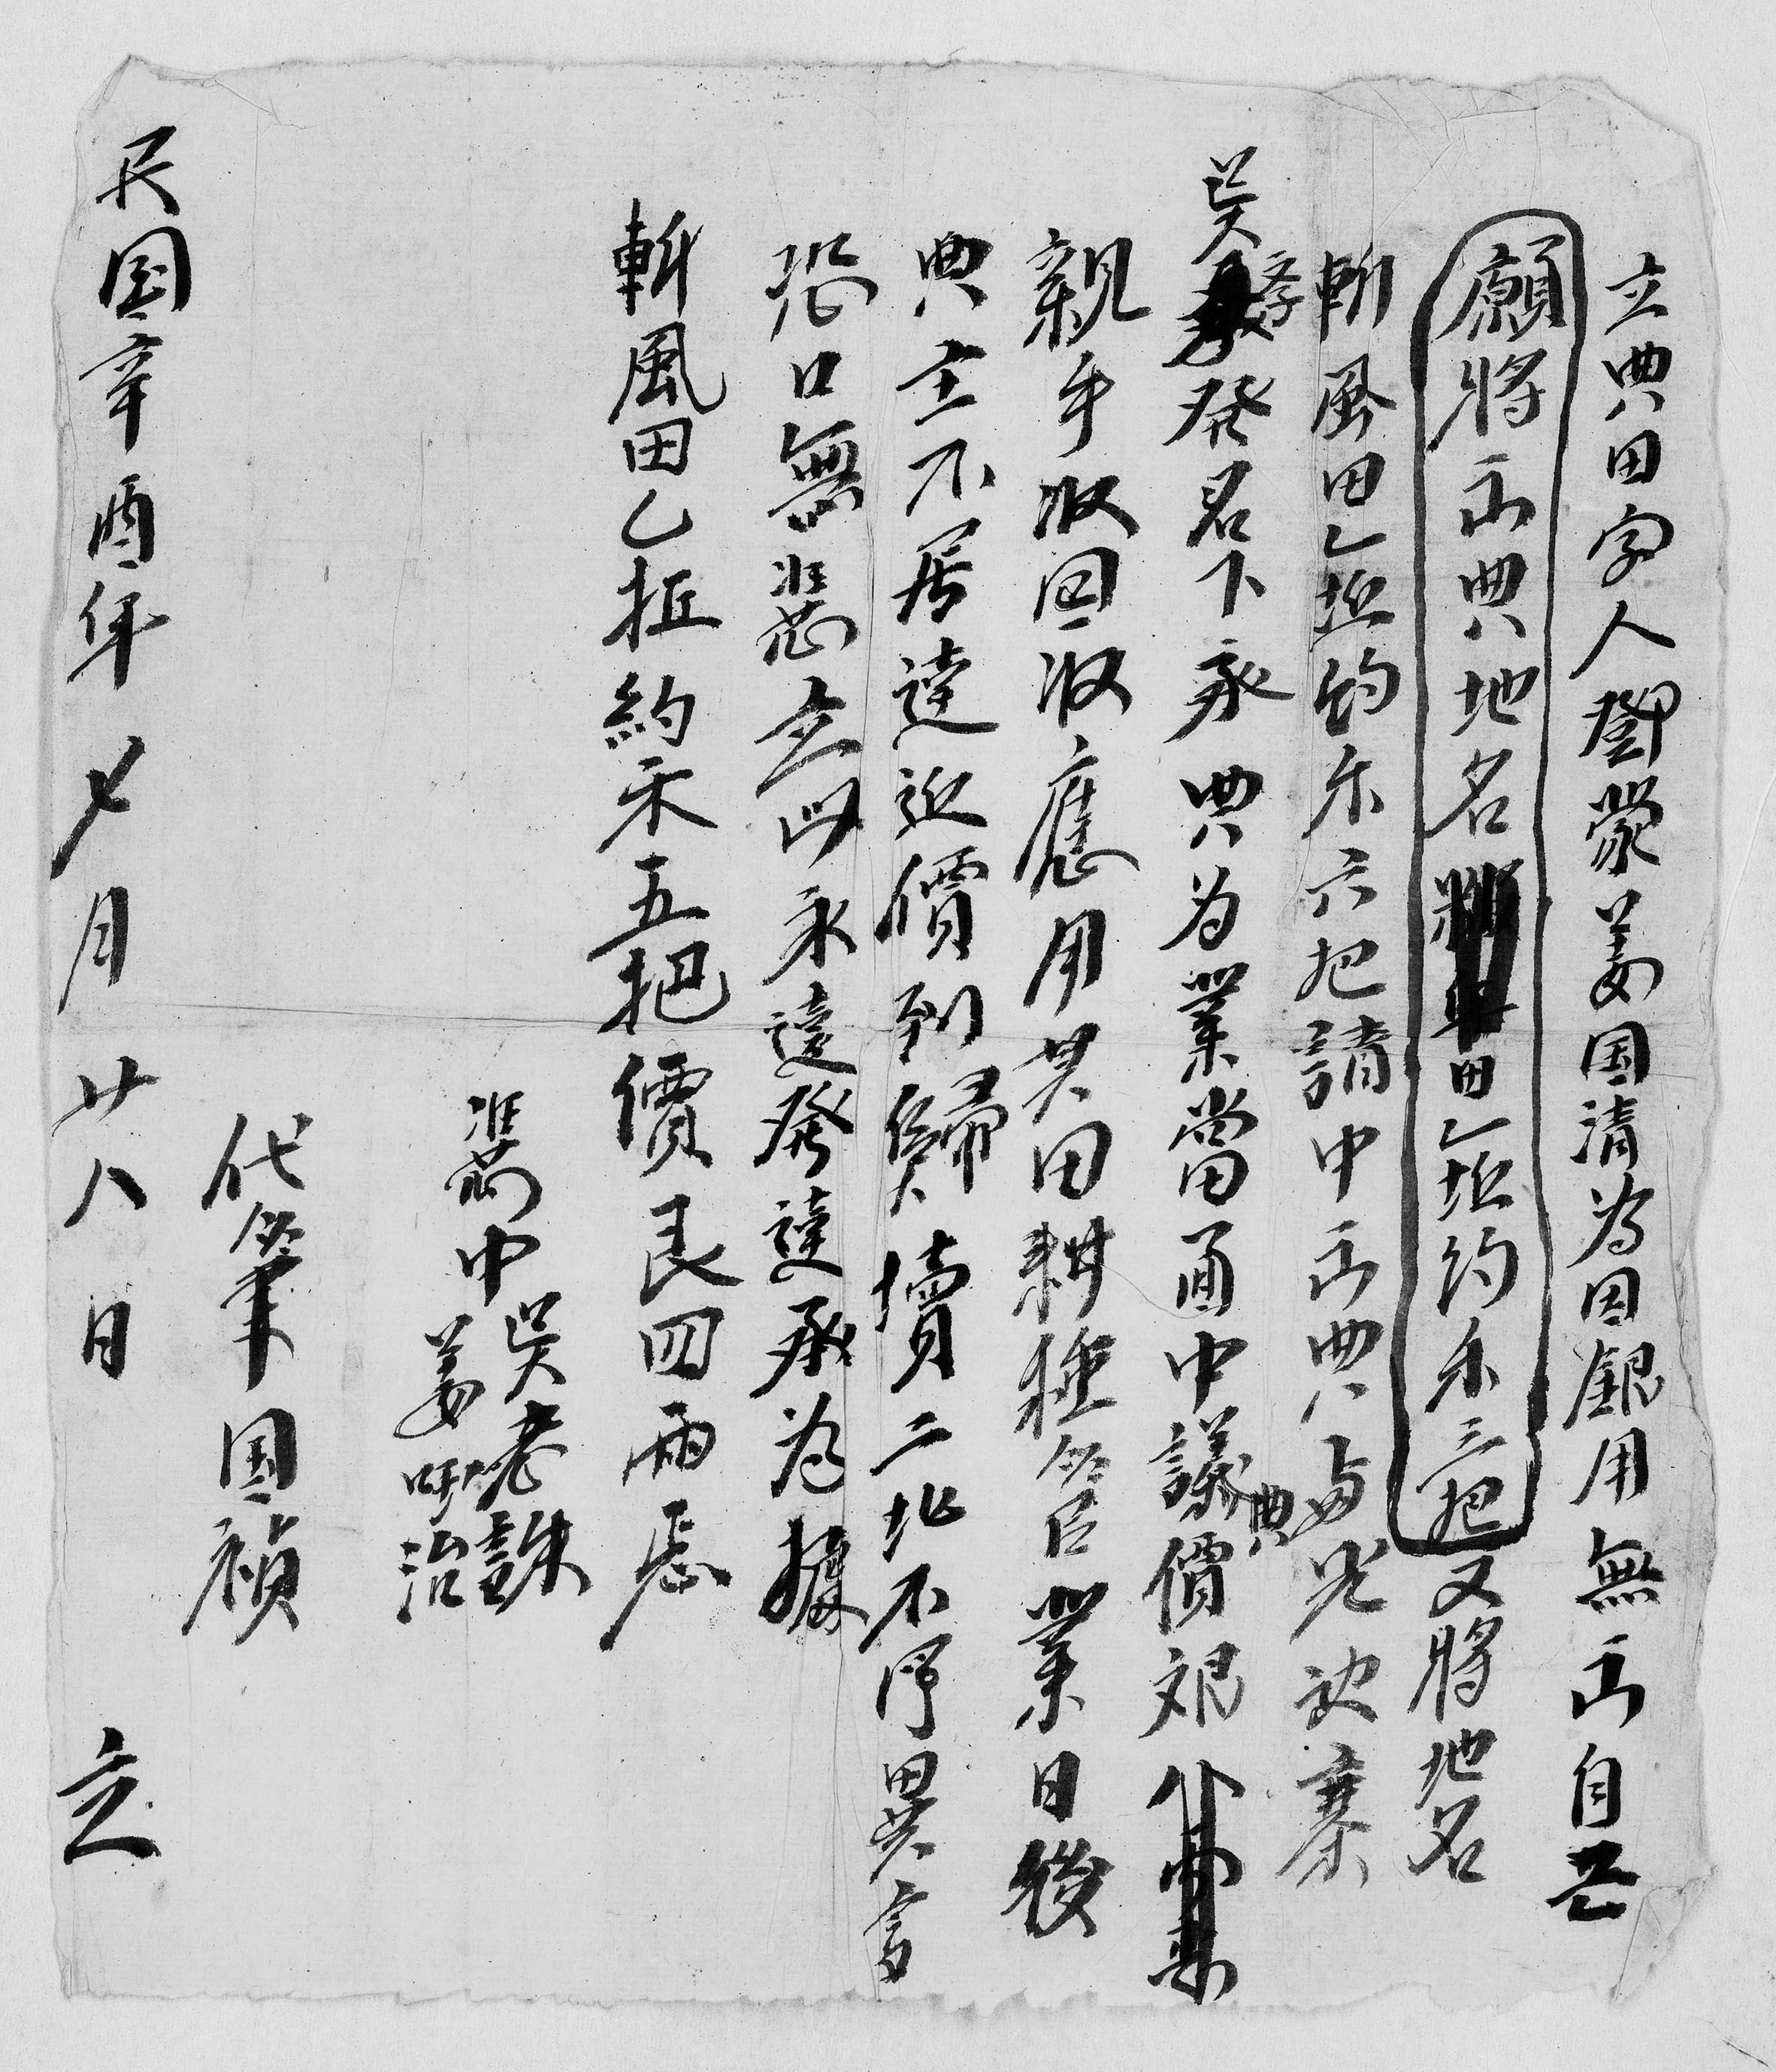 立典田字人鄧蒙姜国清为因銀用無出自己
願將出典地名田乙坵约禾三把又將地名
斬風田乙坵约禾六把請中出典与党泱寨
吴孝發名下承典为業當面中議典價艮八
親手收回收應用其田耕種管業日後
典主不居遠近價到歸續二比不得異言
恐口無憑立此永遠發達承為據
斬風田乙坵約禾五把價艮四兩
憑中吴老
姜治
代筆国禎
民国辛酉年七月廿八日 立